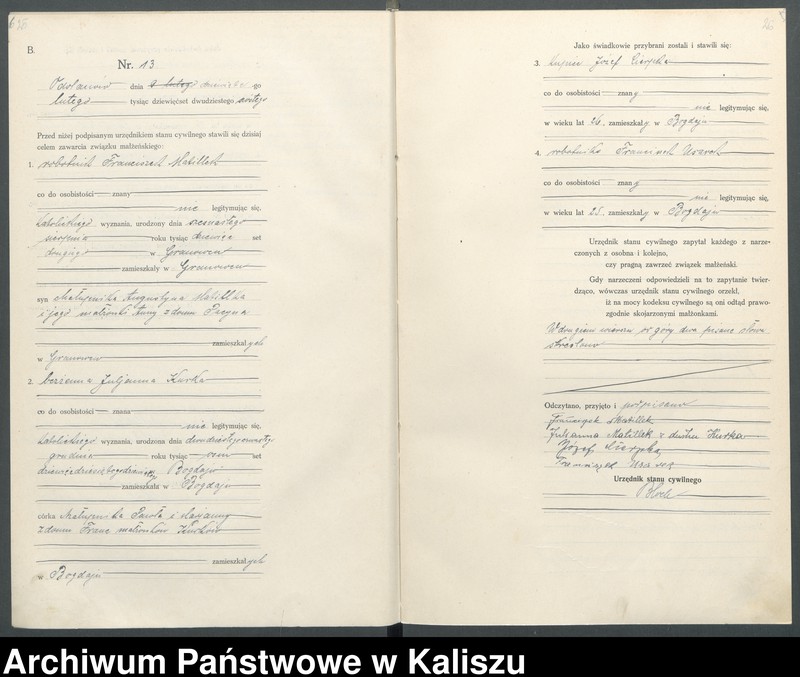 B.
Nr. 13
dnia 9 lutego go
lutego tysiąc dziewięćset dwudziestego
Przed niżej podpisanym urzędnikiem stanu cywilnego stawili się dzisiaj
celem zawarcia związku małżeńskiego:
1. robotnik Franciszek Matillek
co do osobistości znany
nie legitymując się,
katolickiego wyznania, urodzony dnia szesnastego
sierpnia roku tysiąc dziewięć set
drugiego w Granowcu
zamieszkały w Granowcu
syn Augustyna Matillka
i jego małżonki Anny z domu
zamieszkałych
w Granowcu
2. Juljanna Kurka
co do osobistości znana
nie legitymując się,
katolickiego wyznania, urodzona dnia
grudnia roku tysiąc osm set
Bogdaju
zamieszkała w Bogdaju
córka Pawła i Marjanny
z domu Franc małżonków Kurków
zamieszkałych
w Bogdaju
26
Jako świadkowie przybrani zostali i stawili się:
3. Józef Cierpka
co do osobistości znany
nie legitymując się,
w wieku lat 26, zamieszkały w Bogdaju
4. robotnik Franciszek
co do osobistości znany
nie legitymując się,
w wieku lat 25, zamieszkały w Bogdaju
Urzędnik stanu cywilnego zapytał każdego z narze-
czonych z osobna i kolejno,
czy pragną zawrzeć związek małżeński.
Gdy narzeczeni odpowiedzieli na to zapytanie twier-
dząco, wówczas urzędnik stanu cywilnego orzekł,
iż na mocy kodeksu cywilnego są oni odtąd prawo-
zgodnie skojarzonymi małżonkami.
W drugim wierszu od góry dwa pisane słowa
skreślono
Odczytano, przyjęto i podpisano
Franciszek Matillek
Julianna Matillek z domu Kurka
Józef Cierpka
Franciszek
Urzędnik stanu cywilnego
Archiwum Państwowe w Kaliszu